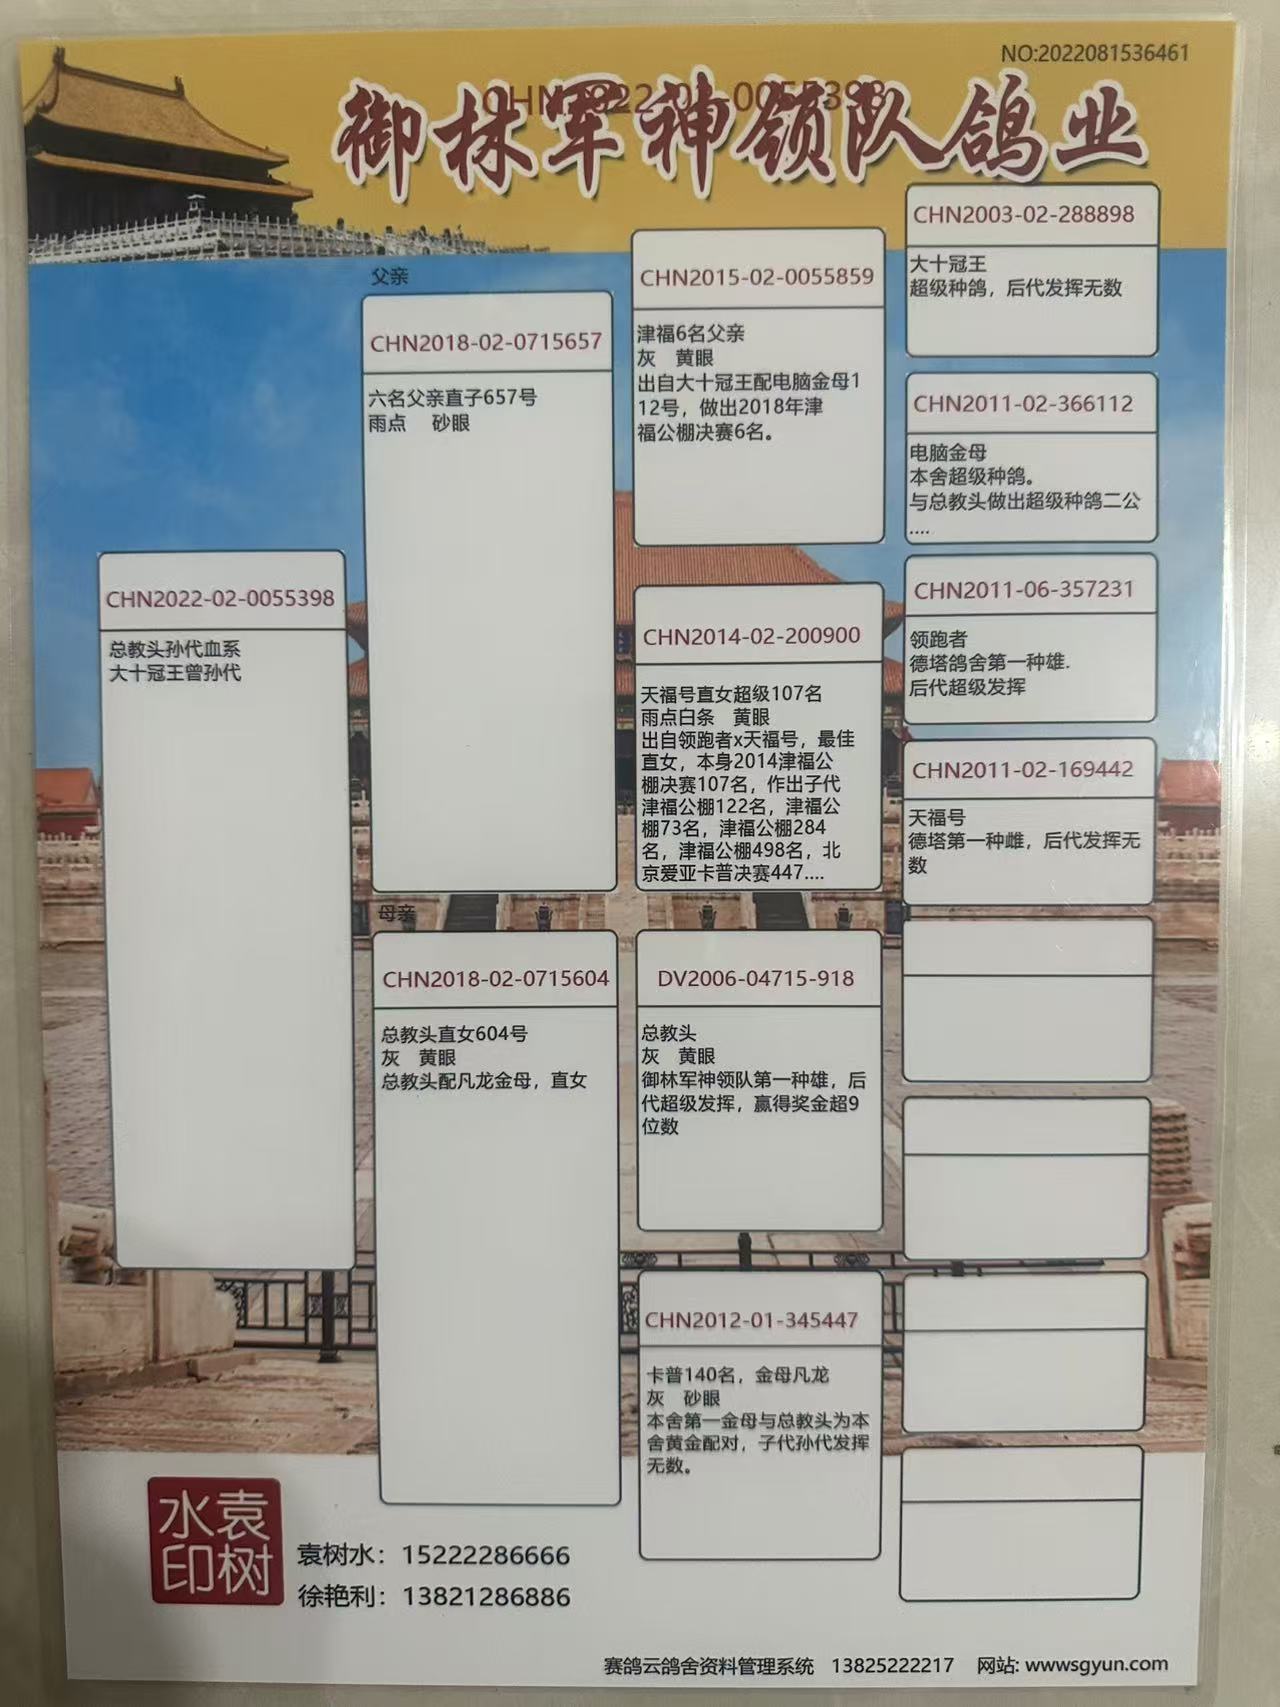 NO:2022081536461
CHN2022-02-0055398
御林军神领队鸽业
CHN2022-02-0055398
总教头孙代血系
大十冠王曾孙代
父亲
CHN2018-02-0715657
六名父亲直子657号
雨点 砂眼
母亲
CHN2018-02-0715604
总教头直女604号
灰 黄眼
总教头配凡龙金母，直女
CHN2015-02-0055859
津福6名父亲
灰 黄眼
出自大十冠王配电脑金母1
12号，做出2018年津
福公棚决赛6名。
CHN2014-02-200900
天福号直女超级107名
雨点白条 黄眼
出自领跑者x天福号，最佳
直女，本身2014津福公
棚决赛107名，作出子代
津福公棚122名，津福公
棚73名，津福公棚284
名，津福公棚498名，北
京爱亚卡普决赛447....
DV2006-04715-918
总教头
灰 黄眼
御林军神领队第一种雄，后
代超级发挥，赢得奖金超9
位数
CHN2012-01-345447
卡普140名，金母凡龙
灰 砂眼
本舍第一金母与总教头为本
舍黄金配对，子代孙代发挥
无数。
CHN2003-02-288898
大十冠王
超级种鸽，后代发挥无数
CHN2011-02-366112
电脑金母
本舍超级种鸽。
与总教头做出超级种鸽二公
....
CHN2011-06-357231
领跑者
德塔鸽舍第一种雄.
后代超级发挥
CHN2011-02-169442
天福号
德塔第一种雌，后代发挥无
数
袁树水印
袁树水：15222286666
徐艳利：13821286886
赛鸽云鸽舍资料管理系统 13825222217 网站: wwwsgyun.com